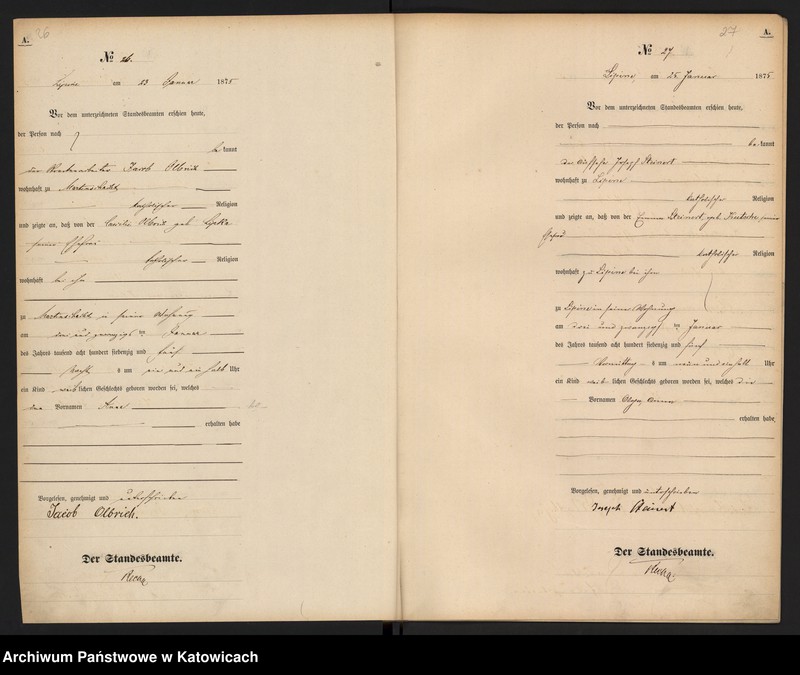 26
A.
№ 26.
Lipine am 23 Januar 1875
Vor dem unterzeichneten Standesbeamten erschien heute,
der Person nach
be kannt
der Jacob Olbrich
wohnhaft zu
katholischer Religion
und zeigte an, daß von der Olbrich geb
seiner Ehefrau
katholischer Religion
wohnhaft bei ihm
zu in seiner Wohnung
am drei und zwanzigsten Januar
des Jahres tausend acht hundert siebenzig und fünf
Nachts um ein und ein halb Uhr
ein Kind weib lichen Geschlechts geboren worden sei, welches
den Vornamen
erhalten habe
Vorgelesen, genehmigt und unterschrieben
Jacob Olbrich.
Der Standesbeamte.
27
A.
№ 27.
Lipine, am 25 Januar 1875
Vor dem unterzeichneten Standesbeamten erschien heute,
der Person nach
be kannt
der Aufseher Joseph Steinert
wohnhaft zu Lipine
katholischer Religion
und zeigte an, daß von der Emma Steinert geb seiner
Ehefrau
katholischer Religion
wohnhaft zu Lipine bei ihm
zu Lipine in seiner Wohnung
am drei und zwanzigsten Januar
des Jahres tausend acht hundert siebenzig und fünf
Vormittag s um neun und ein halb Uhr
ein Kind weib lichen Geschlechts geboren worden sei, welches die
Vornamen Olga, Anna
erhalten habe
Vorgelesen, genehmigt und unterschrieben
Joseph Steinert
Der Standesbeamte.
Archiwum Państwowe w Katowicach